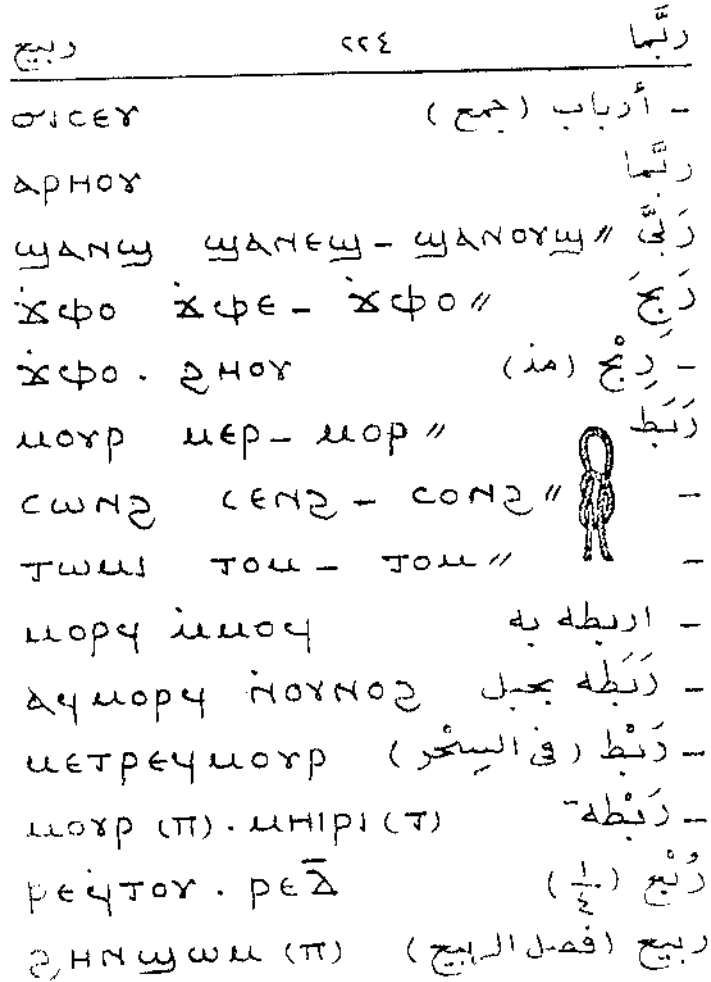 ربَّما ٢٢٤ ربيع
- أرباب (جمع) ϭⲓⲥⲉⲩ
ربَّما ⲁⲣⲏⲟⲩ
رَبَّى ϣⲁⲛϣ ϣⲁⲛⲉϣ- ϣⲁⲛⲟⲩϣ″
رَبِحَ ϫ̇ⲫⲟ ϫ̇ⲫⲉ- ϫ̇ⲫⲟ″
- رِبْح (مذ) ϫ̇ⲫⲟ . ϩⲏⲟⲩ
رَبَط ⲙⲟⲩⲣ ⲙⲉⲣ- ⲙⲟⲣ″
- ⲥⲱⲛϩ ⲥⲉⲛϩ- ⲥⲟⲛϩ″
- ⲧⲱⲙⲓ ⲧⲟⲙ- ⲧⲟⲙ″
- اربطه به ⲙⲟⲣϥ ⲙ̇ⲙⲟϥ
- رَبَطه بحبل ⲁϥⲙⲟⲣϥ ⲛ̇ⲟⲩⲛⲟϩ
- رَبْط (فى السِحْر) ⲙⲉⲧⲣⲉϥⲙⲟⲩⲣ
- رَبْطه ⲙⲟⲩⲣ (ⲡ) . ⲙⲏⲓⲣⲓ (ⲧ)
رُبْع (١/٤) ⲣⲉϥⲧⲟⲩ . ⲣⲉⲇ̅
ربيع (فصل الربيع) ϩⲏⲛϣⲱⲙ (ⲡ)